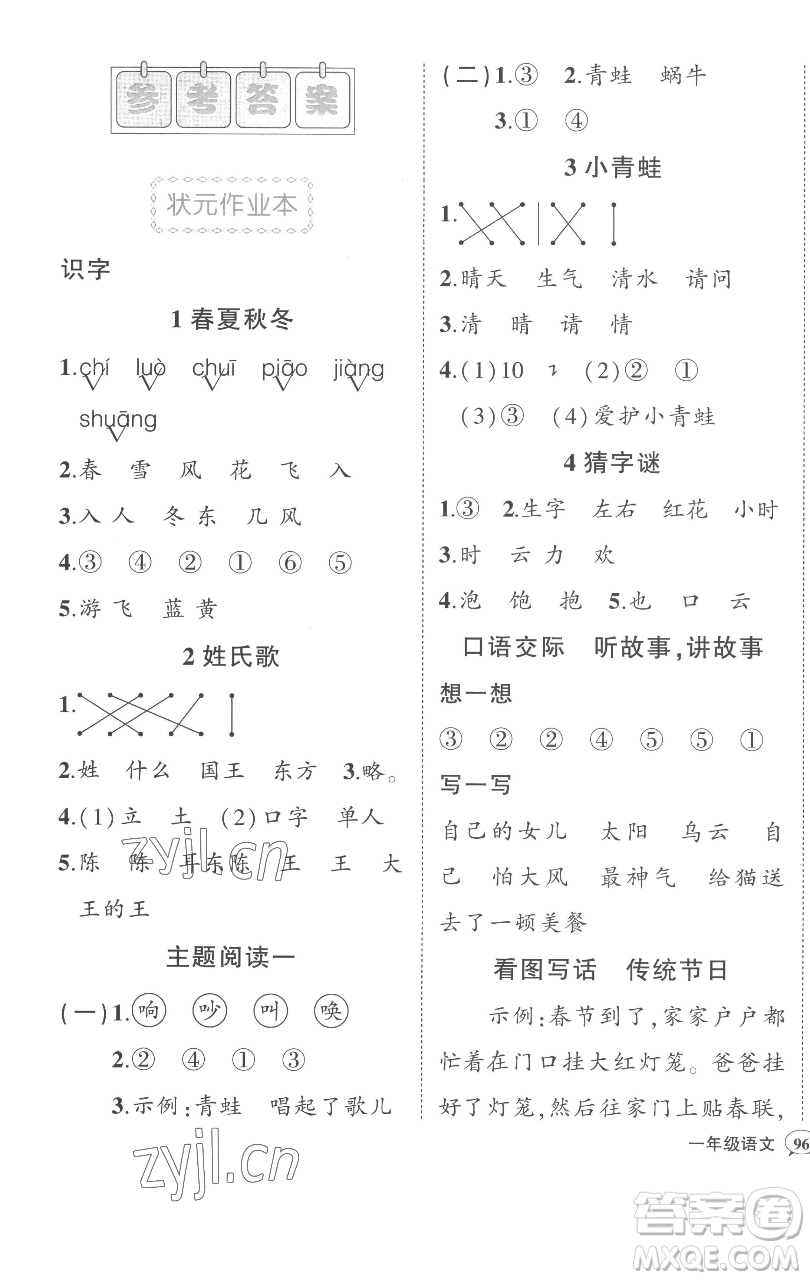 参考答案
状元作业本
识字
1 春夏秋冬
1.chí luò chuī piāo jiàng
shuāng
2.春 雪 风 花 飞 入
3.入 人 冬 东 几 风
4.③ ④ ② ① ⑥ ⑤
5.游 飞 蓝 黄
2 姓氏歌
1.
2.姓 什么 国王 东方 3.略。
4.(1)立 土 (2)口字 单人
5.陈 陈 耳东陈 王 王 大
王的王
zyjl.cn
主题阅读一
(一)1.响 吵 叫 唤
2.② ④ ① ③
3.示例:青蛙 唱起了歌儿
zyjl.cn
(二)1.③ 2.青蛙 蜗牛
3.① ④
3 小青蛙
1.
2.晴天 生气 清水 请问
3.清 晴 请 情
4.(1)10 ㇊ (2)② ①
(3)③ (4)爱护小青蛙
4 猜字谜
1.③ 2.生字 左右 红花 小时
3.时 云 力 欢
4.泡 饱 抱 5.也 口 云
口语交际 听故事,讲故事
想一想
③ ② ② ④ ⑤ ⑤ ①
写一写
自己的女儿 太阳 乌云 自
己 怕大风 最神气 给猫送
去了一顿美餐
看图写话 传统节日
示例:春节到了,家家户户都
忙着在门口挂大红灯笼。爸爸挂
好了灯笼,然后往家门上贴春联,
一年级语文 96
答案圈
MXQE.COM